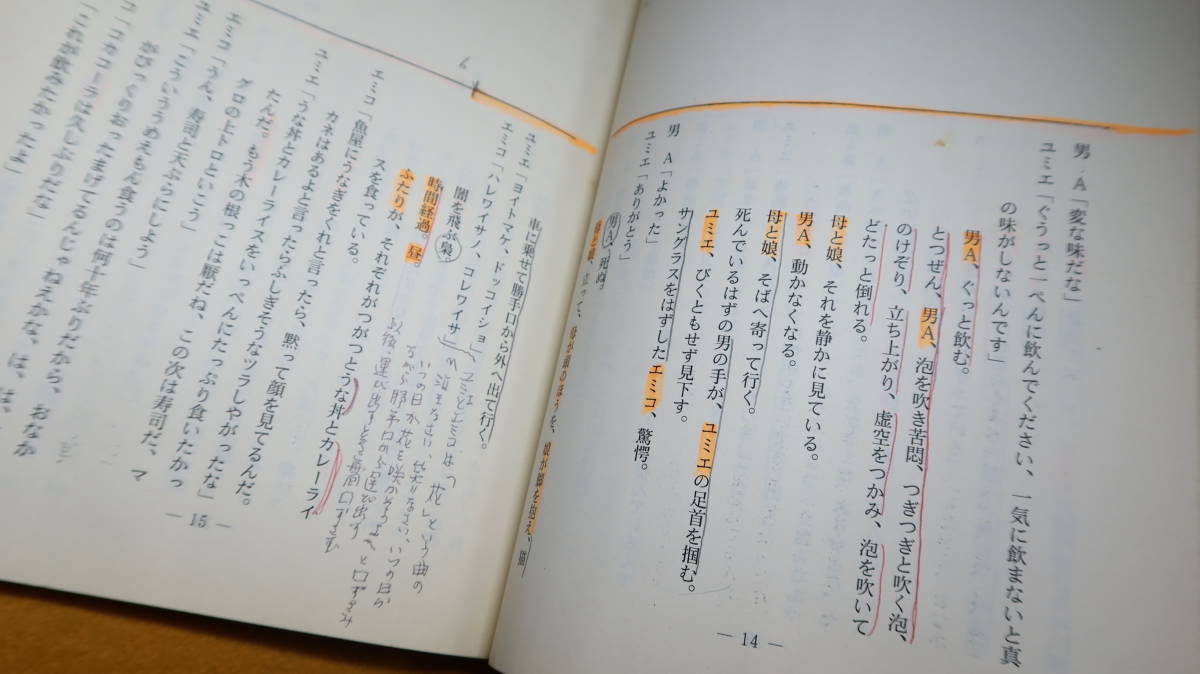 男 A「変な味だな」
ユミエ「ぐうっと一ぺんに飲んでください、一気に飲まないと真
の味がしないんです」
男A、ぐっと飲む。
とつぜん、男A、泡を吹き苦悶、つぎつぎと吹く泡、
のけぞり、立ち上がり、虚空をつかみ、泡を吹いて
どたっと倒れる。
母と娘、それを静かに見ている。
男A、動かなくなる。
母と娘、そばへ寄って行く。
死んでいるはずの男の手が、ユミエの足首を掴む。
ユミエ、びくともせず見下す。
サングラスをはずしたエミコ、驚愕。
男 A「よかった」
ユミエ「ありがとう」
男A、死ぬ。
母と娘、 、母が頭のほうを、娘が脚を抱え、
― 14 ―
車に乗せて勝手口から外へ出て行く。
ユミエ「ヨイトマケ、ドッコイショ」
エミコ「ハレワイサノ、コレワイサ」
闇を飛ぶ梟。
時間経過。昼。
ふたりが、それぞれがつがつとうな丼とカレーライ
スを食っている。
エミコ「魚屋にうなぎをくれと言ったら、黙って顔を見てるんだ。
カネはあるよと言ったらふしぎそうなツラしやがったな」
ユミエ「うな丼とカレーライスをいっぺんにたっぷり食いたかっ
たんだ。もう木の根っこは厭だね、この次は寿司だ、マ
グロの上トロといこう」
エミコ「うん、寿司と天ぷらにしよう」
ユミエ「こういううめえもん食うのは何十年ぶりだから、おなか
がびっくりおったまげてるんじゃねえかな、は、は、
「コカコーラは久しぶりだな」
「これが飲みたかったよ」
― 15 ―
ユミエとエミコは「花」という曲の
泣きなさい、笑いなさい、いつの日か
いつの日か花を咲かそうよ」と口ずさみ
ながら勝手口から運び出す
以後、運び出すときは毎回口ずさむ